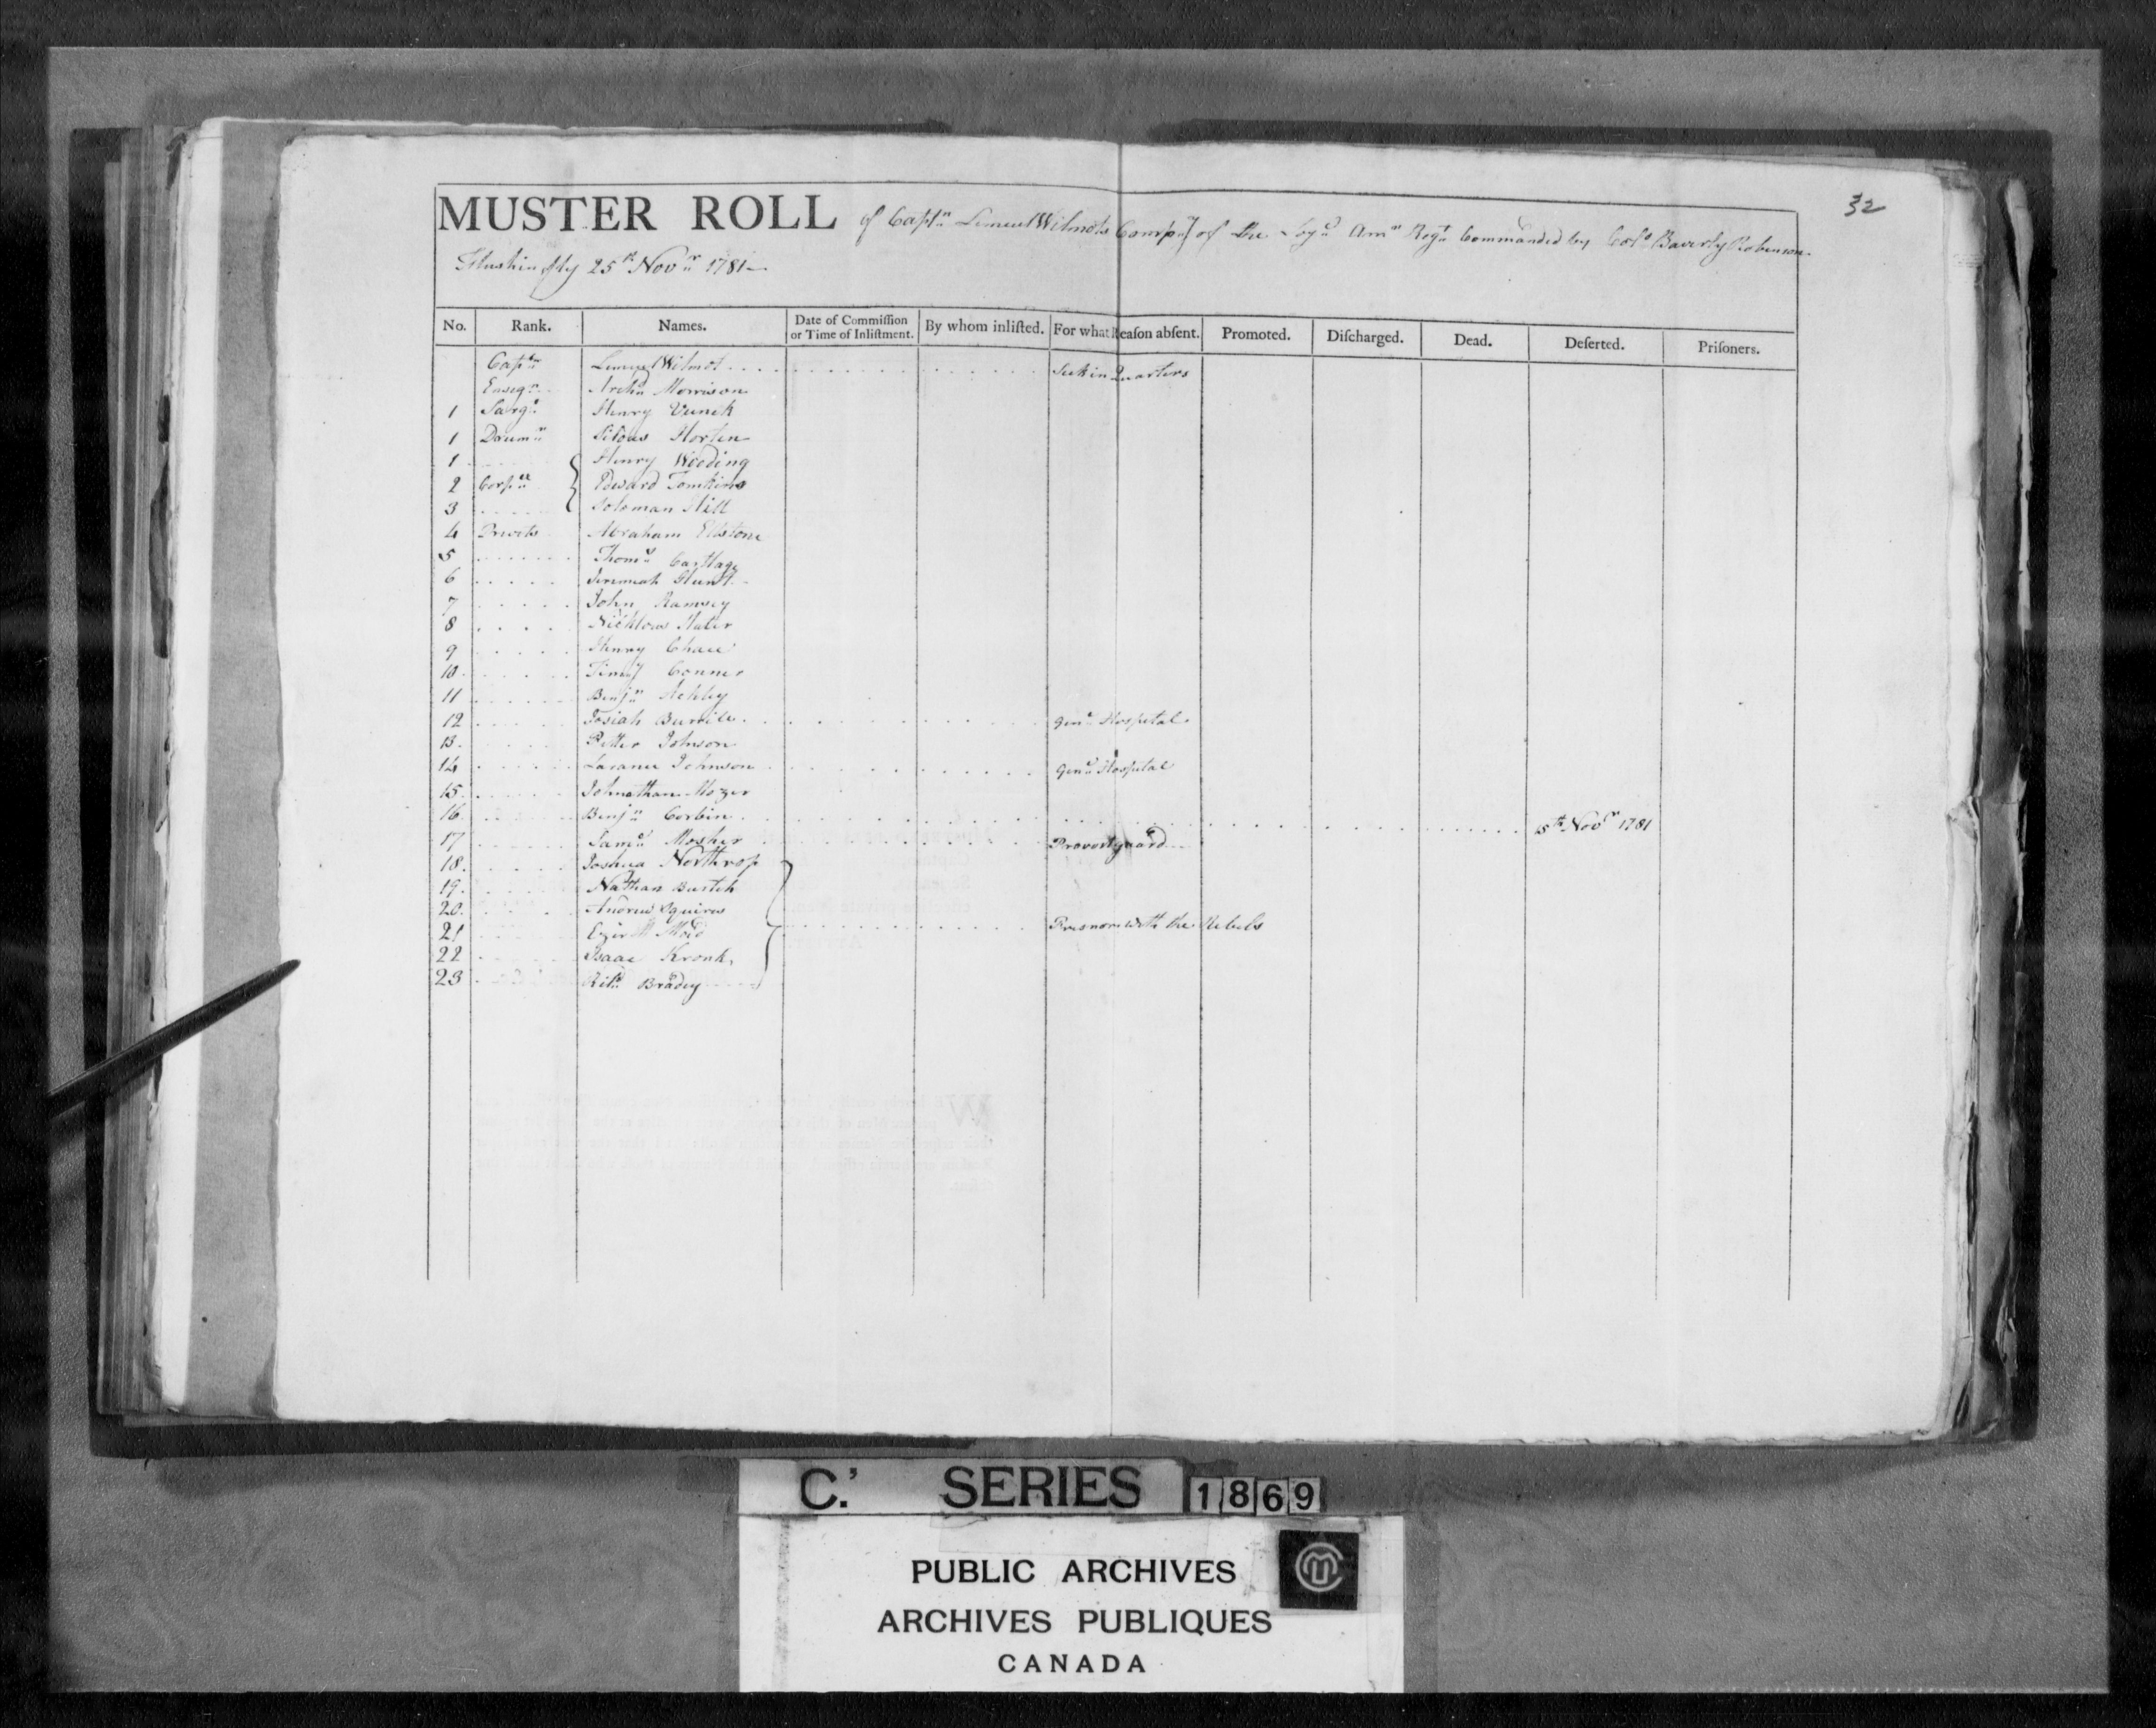 32
MUSTER ROLL of Captn Lemeul Wilmots Compy of the Loyl Amn Regt Commanded by Coll Baverly Robinson
Flushin fly 25th Novr 1781
No. Rank. Names. Date of Commiſſion or Time of Inliſtment. By whom inliſted. For what Reaſon abſent. Promoted. Diſcharged. Dead. Deſerted. Priſoners.
Captn Lemuel Wilmot Sick in Quarters
Ensegn Archd Morrison
1 Sargt Henry Vunck
1 Drumr Silvus Horten
1 Henry Wooding
2 Corpll Edward Tomkins
3 Soloman Hill
4 Privets Abraham Elistone
5 Thoms Carthage
6 Jeremiah Hunt
7 John Ramsey
8 Nichlous Slater
9 Henry Chace
10 Timy Conner
11 Benjn Ackley
12 Josiah Burrile Genl Hospital
13 Petter Johnson
14 Johnson Genl Hospital
15 Johnathan Hozer
16 Benjn Corbin 15th Novr 1781
17 Saml Mosher Provort guard
18 Joshua Northrop
19 Nathan Burtch
20 Andrew Squires
21 Presnors with the Rebels
22 Isaac Kronk
23 Bradey
C.' SERIES 1869
PUBLIC ARCHIVES
ARCHIVES PUBLIQUES
CANADA